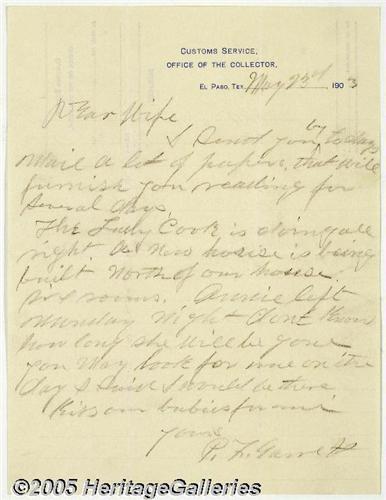 CUSTOMS SERVICE,
OFFICE OF THE COLLECTOR,
EL PASO, TEX. May 23d 1903
Dear Wife
I send you by to days
mail a lot of papers, that will
furnish you reading for
several days,
The Lady Cook is doing all
right A New house is being
built North of our house
rooms. Annie left
Munday Night dont Know
how long she will be gone
you May look for me on the
day I said I would be there
Kiss our babies for me
yours
P. F. Garrett
©2005 HeritageGalleries